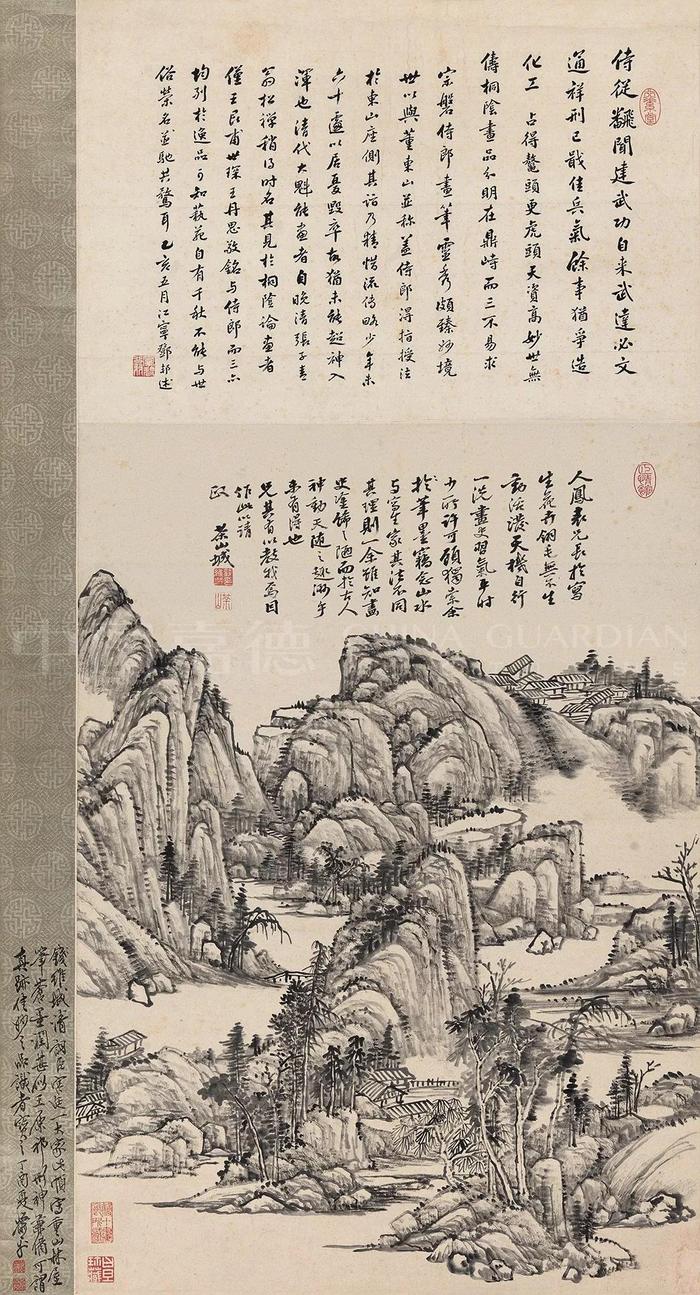 侍從翻聞建武功自来武達必文
通祥刑已戢佳兵氣餘事猶爭造
化工 占得鼇頭更虎頭天資高妙世無
儔桐陰畫品分明在鼎峙而三不易求
宗磐侍郎畫筆靈秀頗臻妙境
世以與董東山並称蓋侍郎得指授法
於東山座側其詣乃精惜流傳略少年未
六十遽以居憂毀卒故猶未能超神入
渾也清代大魁能畫者自晚清張子青
翁松禪稍得時名其見於桐陰論畫者
僅王艮甫世琛王丹思敬銘与侍郎而三亦
均列於逸品可知藝苑自有千秋不能与世
俗榮名並馳共騖耳 乙亥五月江寧鄧邦述
人鳳表兄長於寫
生花卉翎毛無不生
動活潑天機自行
一洗畫史習氣平時
少所許可顧獨賞余
於筆墨竊念山水
与寫生家其法不同
其理則一余雖知畫
史塗飾之陋而於古人
神動天隨之趣渺乎
未有得也
兄其有以教我焉因
作此以請
政 茶山城
錢維城清
真跡信妙之品識者寶之丁酉夏
中国嘉德 CHINA GUARDIAN